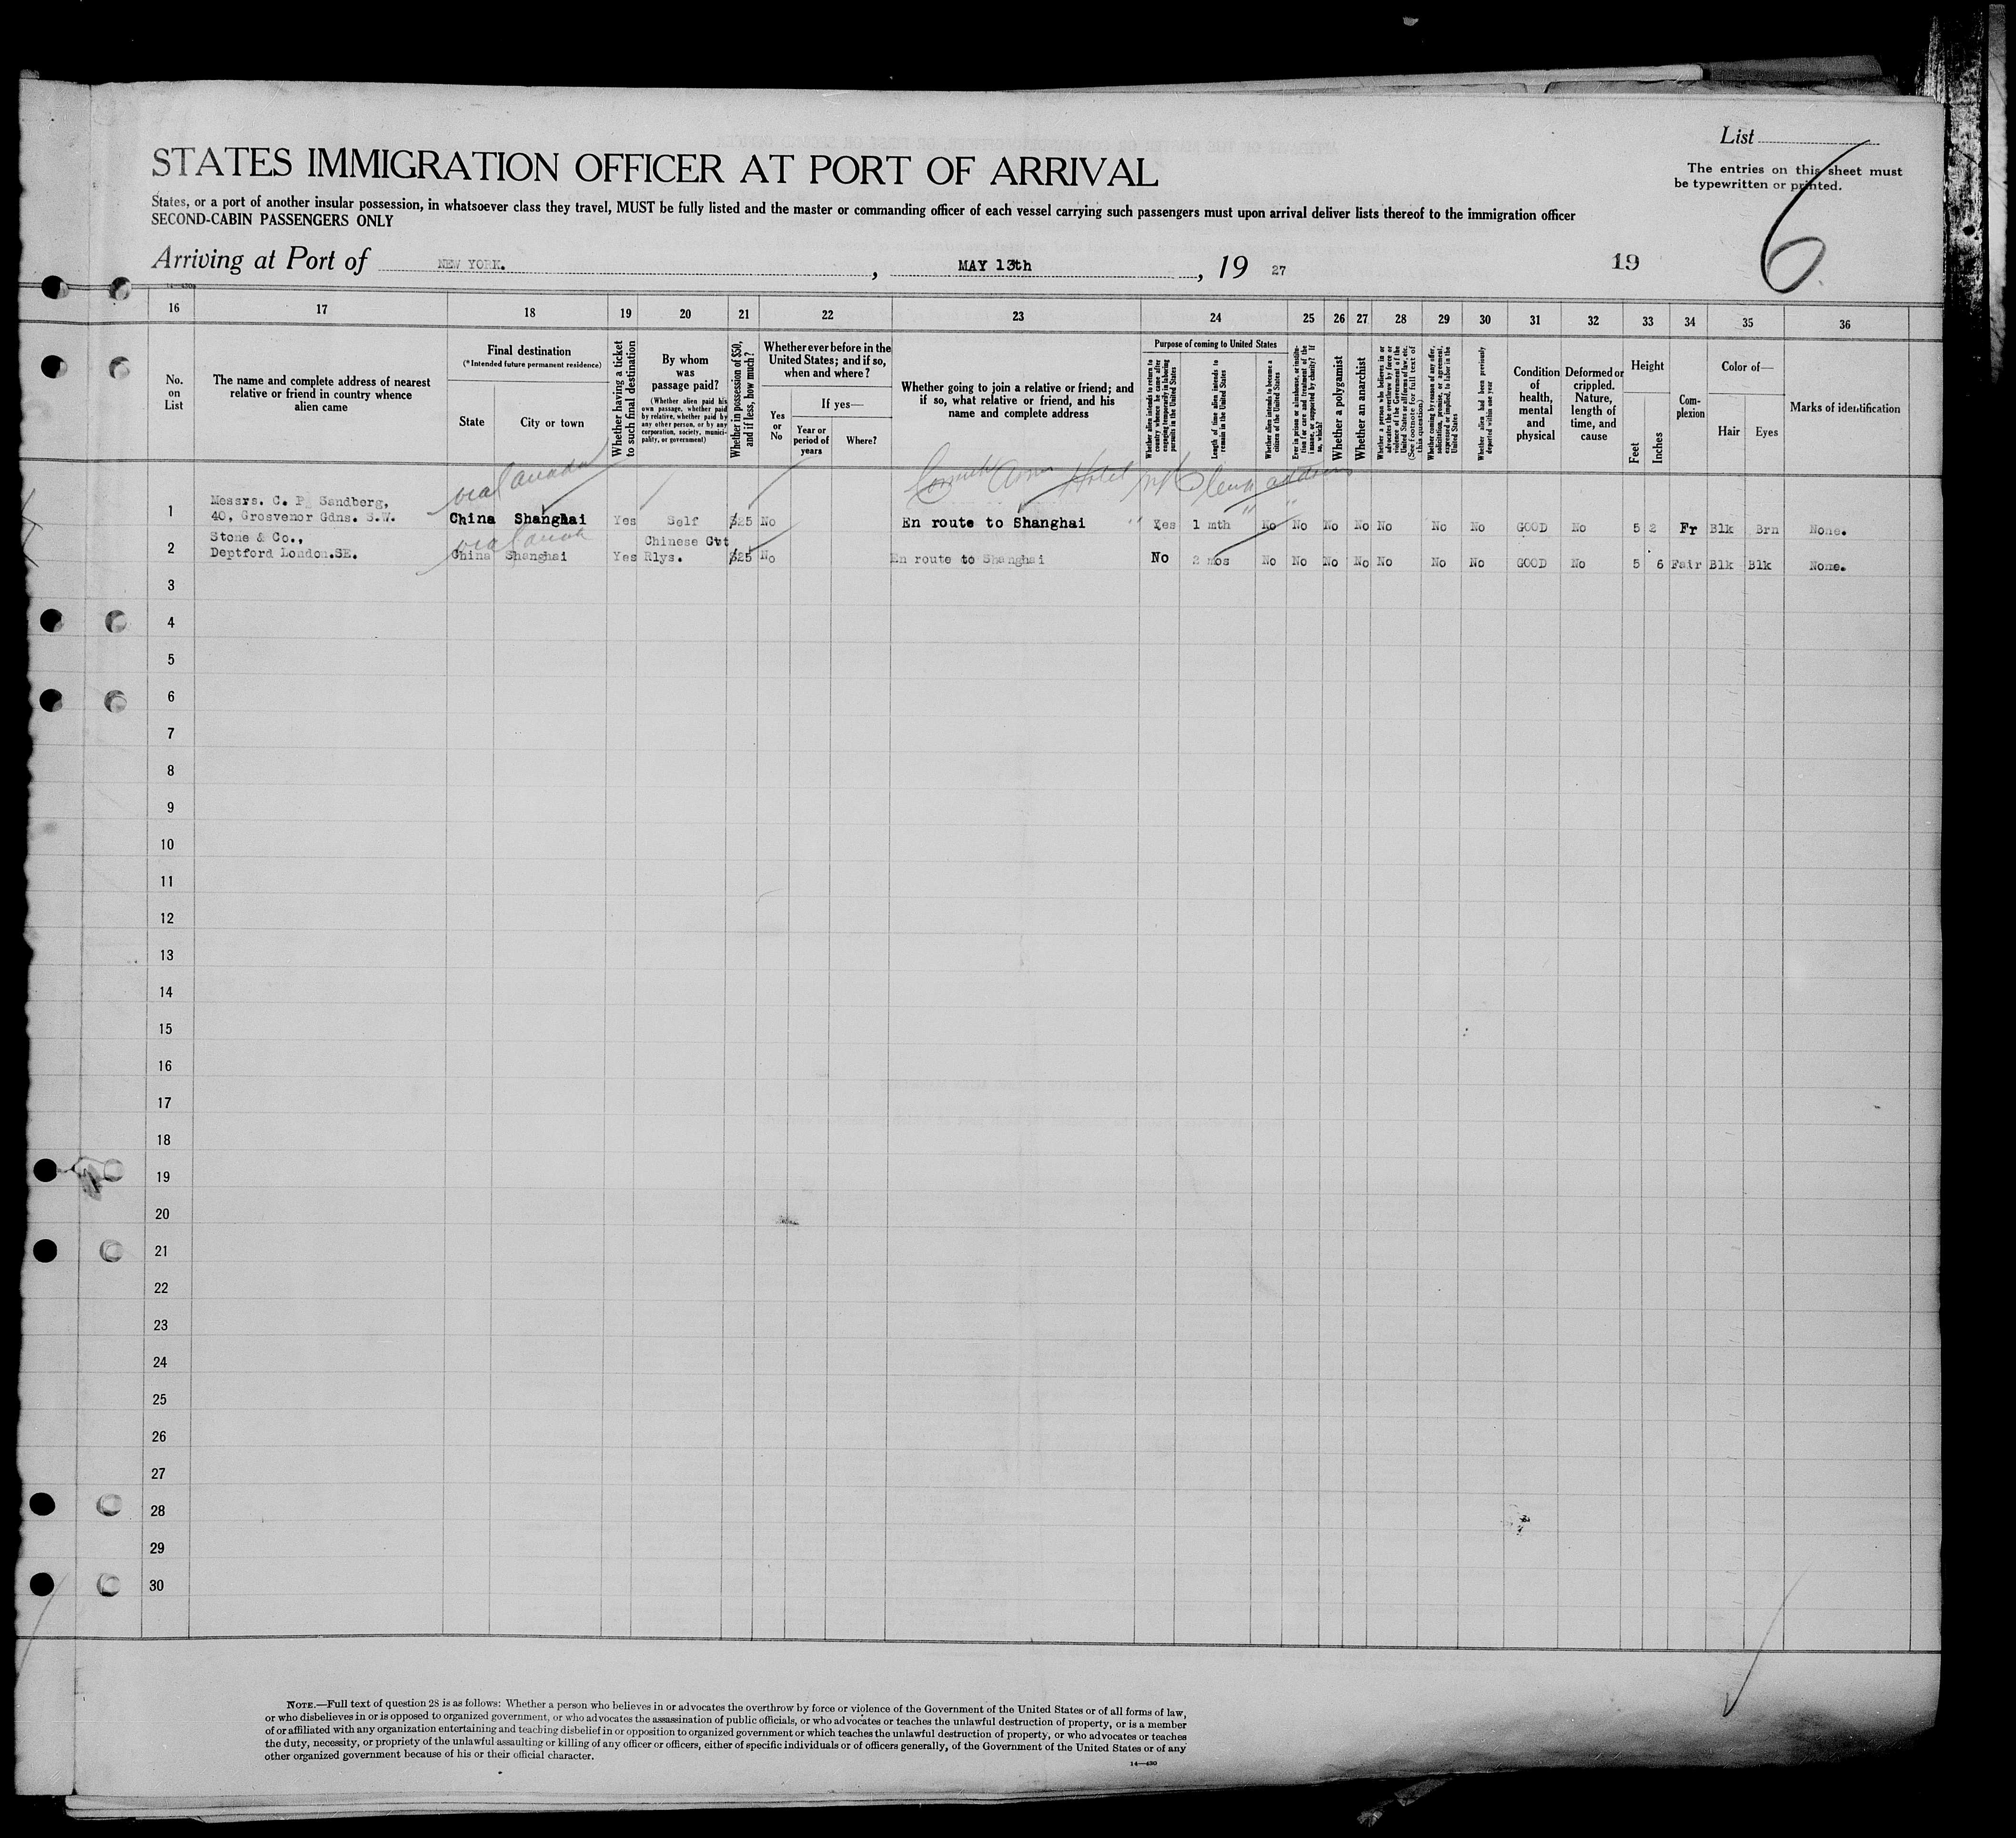 List
The entries on this sheet must
be typewritten or printed.
6
STATES IMMIGRATION OFFICER AT PORT OF ARRIVAL
States, or a port of another insular possession, in whatsoever class they travel, MUST be fully listed and the master or commanding officer of each vessel carrying such passengers must upon arrival deliver lists thereof to the immigration officer
SECOND-CABIN PASSENGERS ONLY
Arriving at Port of NEW YORK. , MAY 13th , 19 27
19
16 17 18 19 20 21 22 23 24 25 26 27 28 29 30 31 32 33 34 35 36
No.
on
List
The name and complete address of nearest
relative or friend in country whence
alien came
Final destination
(*Intended future permanent residence)
State
City or town
Whether having a ticket
to such final destination
By whom
was
passage paid?
(Whether alien paid his
own passage, whether paid
by relative, whether paid by
any other person, or by any
corporation, society, munici-
pality, or government)
Whether in possession of $50,
and if less, how much?
Whether ever before in the
United States; and if so,
when and where?
Yes
or
No
If yes—
Year or
period of
years
Where?
Whether going to join a relative or friend; and
if so, what relative or friend, and his
name and complete address
Purpose of coming to United States
Whether alien intends to return to
country whence he came after
engaging temporarily in laboring
pursuits in the United States
Length of time alien intends to
remain in the United States
Whether alien intends to become a
citizen of the United States
Ever in prison or almshouse, or institu-
tion for care and treatment of the
insane, or supported by charity? If
so, which?
Whether a polygamist
Whether an anarchist
Whether a person who believes in or
advocates the overthrow by force or
violence of the Government of the
United States or all forms of law, etc.
(See footnote for full text of
this question)
Whether coming by reason of any offer,
solicitation, promise, or agreement,
expressed or implied, to labor in the
United States
Whether alien had been previously
deported within one year
Condition
of
health,
mental
and
physical
Deformed or
crippled.
Nature,
length of
time, and
cause
Height
Feet
Inches
Com-
plexion
Color of—
Hair
Eyes
Marks of identification
via Canada
Hotel
Messrs. C. P. Sandberg,
1 40, Grosvenor Gdns. S.W. China Shanghai Yes Self $25 No En route to Shanghai Yes 1 mth No No No No No No No GOOD No 5 2 Fr Blk Brn None.
via Canada
Stone & Co., Chinese Gvt
2 Deptford London.SE. China Shanghai Yes Rlys. $25 No En route to Shanghai No 2 mos No No No No No No No GOOD No 5 6 Fair Blk Blk None.
3
4
5
6
7
8
9
10
11
12
13
14
15
16
17
18
19
20
21
22
23
24
25
26
27
28
29
30
NOTE.—Full text of question 28 is as follows: Whether a person who believes in or advocates the overthrow by force or violence of the Government of the United States or of all forms of law,
or who disbelieves in or is opposed to organized government, or who advocates the assassination of public officials, or who advocates or teaches the unlawful destruction of property, or is a member
of or affiliated with any organization entertaining and teaching disbelief in or opposition to organized government or which teaches the unlawful destruction of property, or who advocates or teaches
the duty, necessity, or propriety of the unlawful assaulting or killing of any officer or officers, either of specific individuals or of officers generally, of the Government of the United States or of any
other organized government because of his or their official character.
14—430